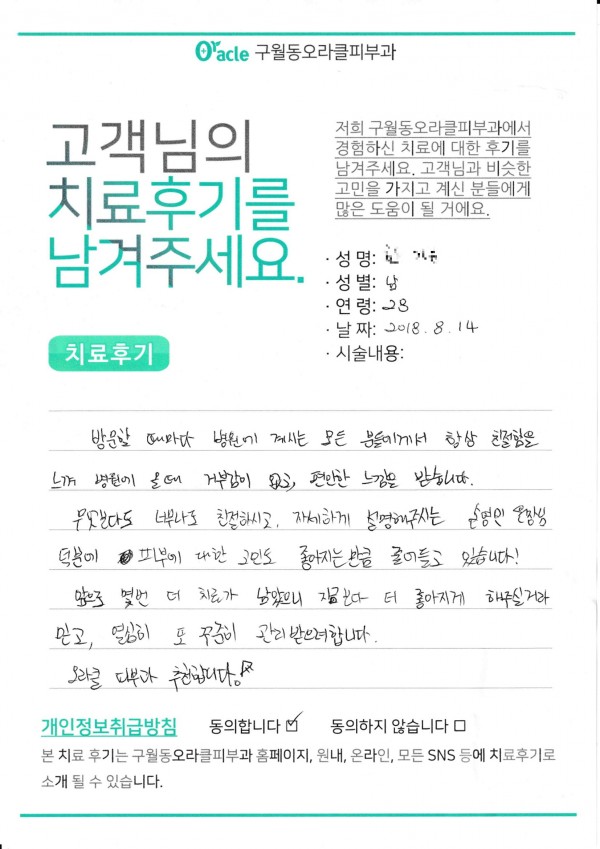 Oracle 구월동오라클피부과
고객님의
치료후기를
남겨주세요.
저희 구월동오라클피부과에서
경험하신 치료에 대한 후기를
남겨주세요. 고객님과 비슷한
고민을 가지고 계신 분들에게
많은 도움이 될 거에요.
· 성 명:
· 성 별: 남
· 연 령: 28
· 날 짜: 2018. 8. 14
· 시술내용:
치료후기
방문할 때마다 병원에 계시는 모든 분들에게서 항상 친절함을
느껴 병원에 올때 거부감이 없고, 편안한 느낌을 받습니다.
무엇보다도 너무나도 친절하시고, 자세하게 설명해주시는 손영인 원장님
덕분에 피부에 대한 고민도 좋아지는만큼 줄어들고 있습니다!
앞으로 몇번 더 치료가 남았으니 지금보다 더 좋아지게 해주실거라
믿고, 열심히 또 꾸준히 관리받으려합니다.
오라클 피부과 추천합니다!
개인정보취급방침 동의합니다 ☑ 동의하지 않습니다 □
본 치료 후기는 구월동오라클피부과 홈페이지, 원내, 온라인, 모든 SNS 등에 치료후기로
소개 될 수 있습니다.